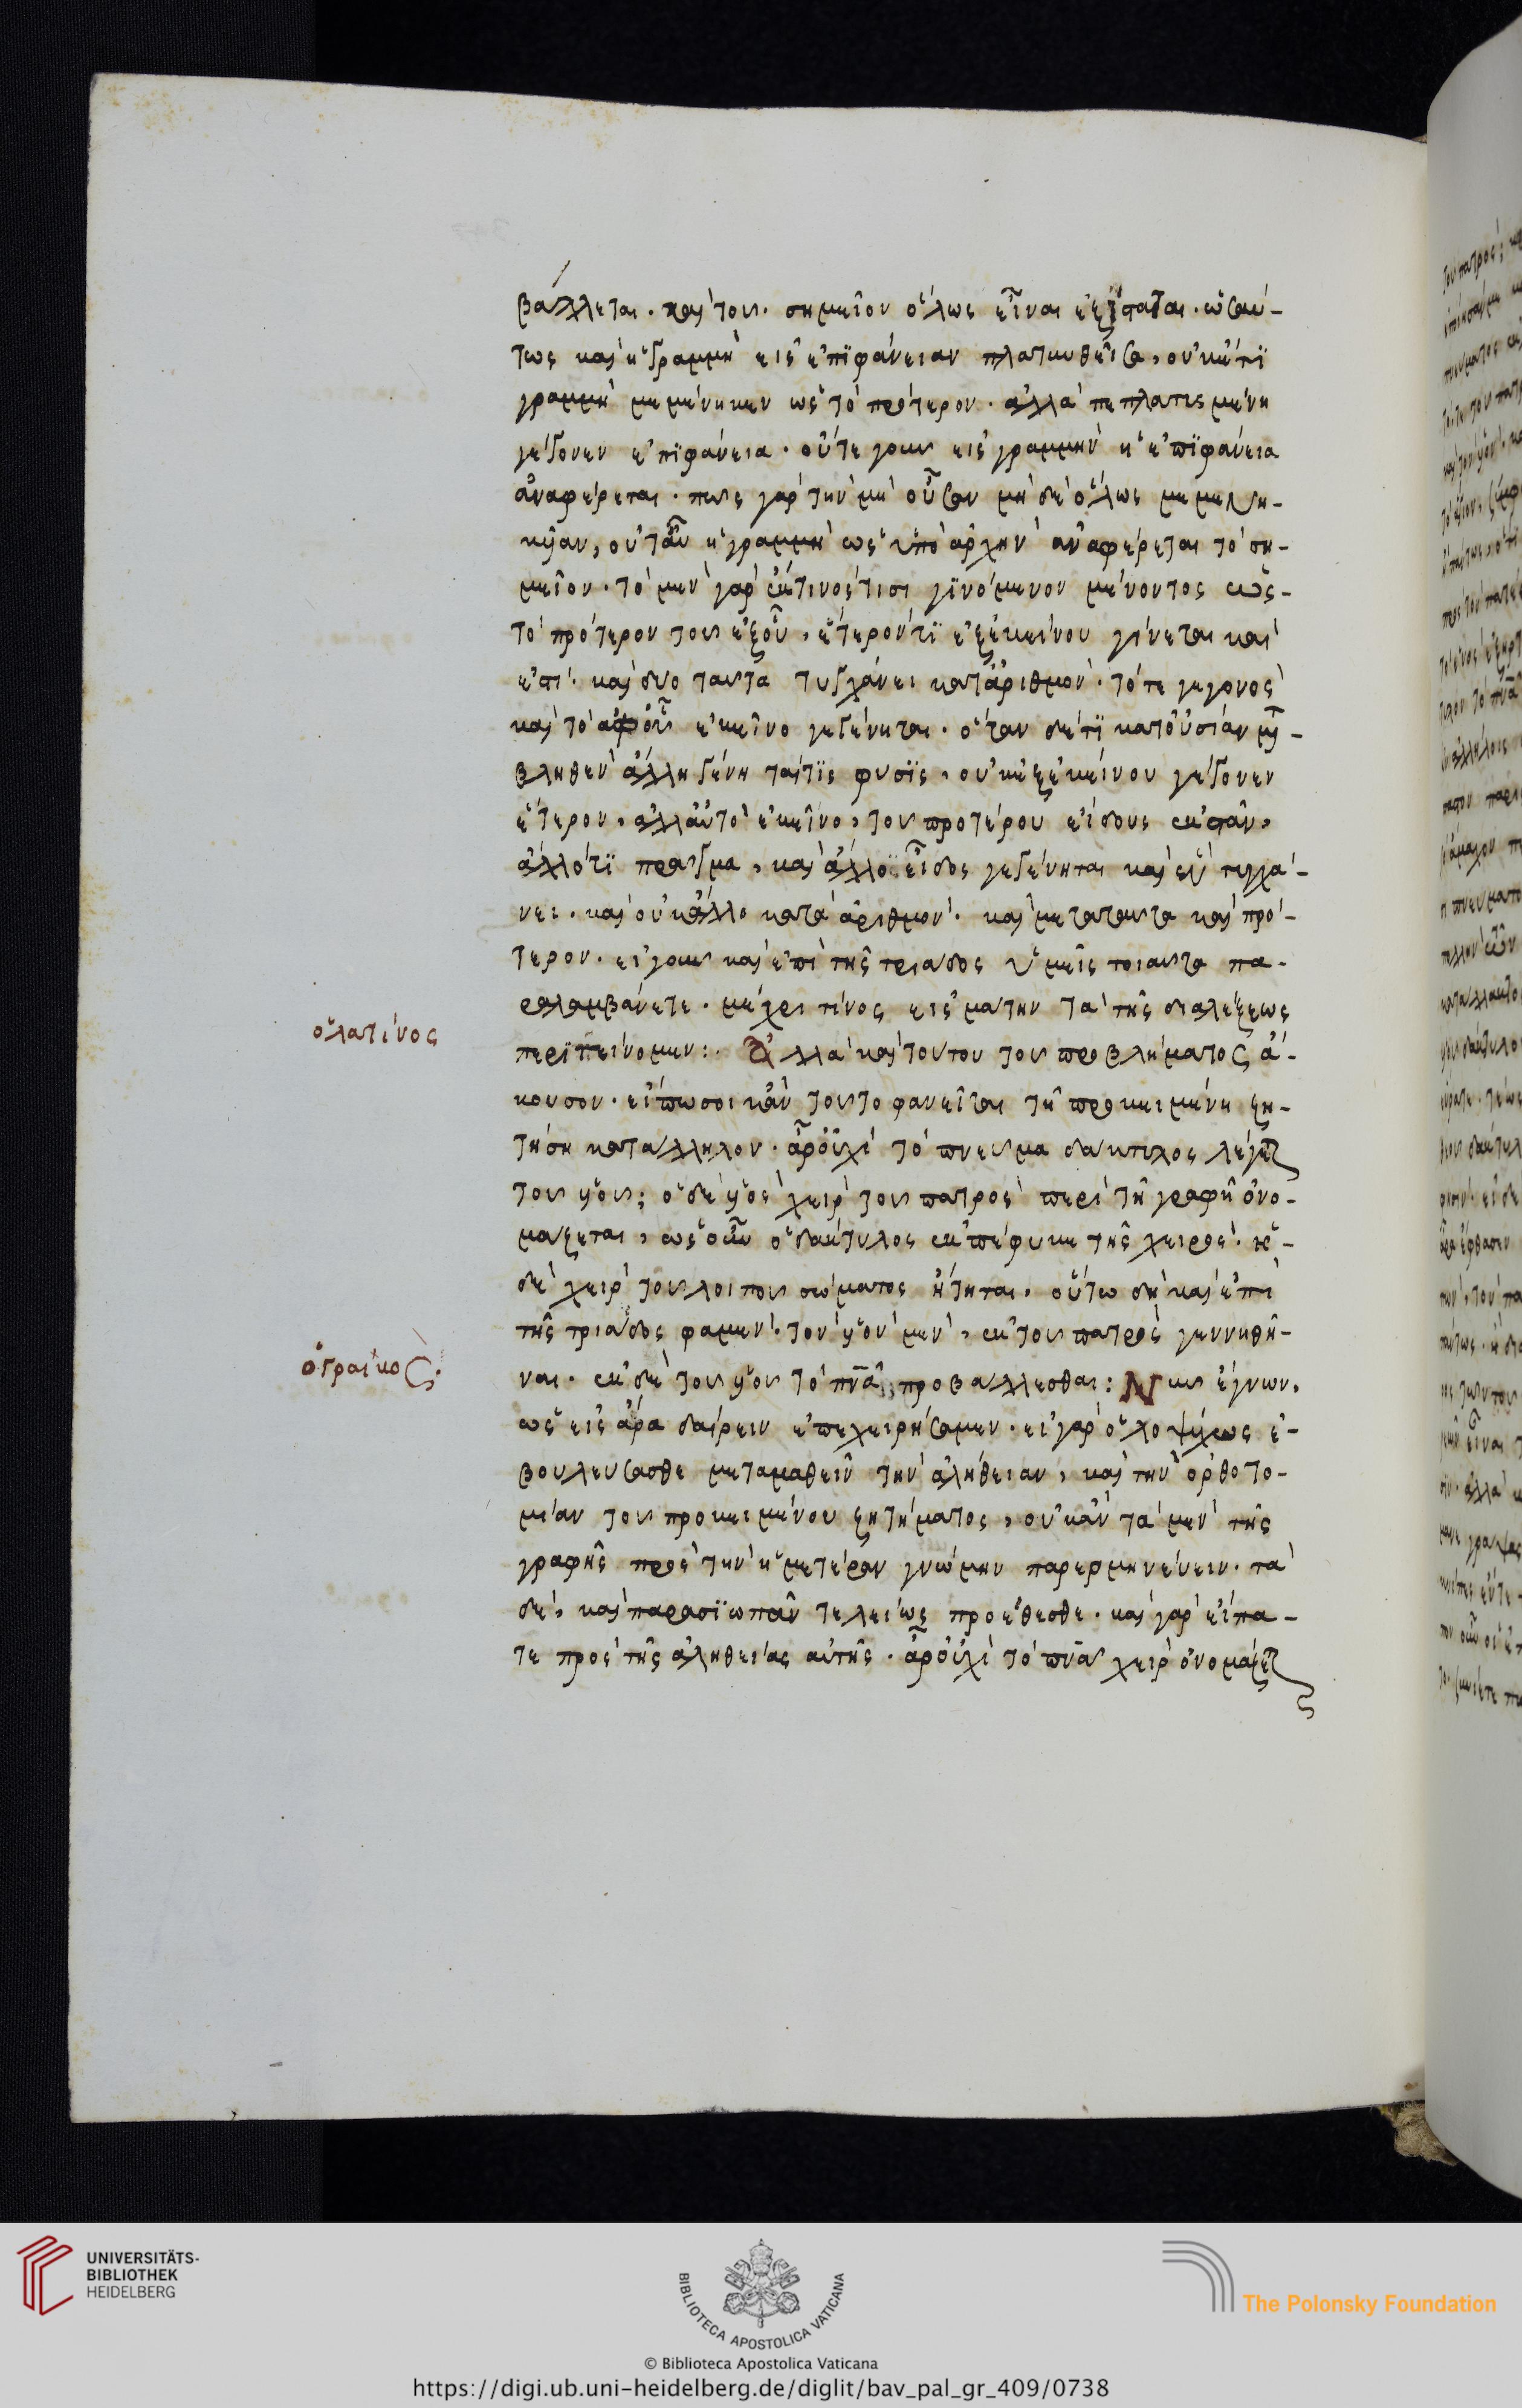 βάλλεται. καὶ τοῦ. σημεῖον ὅλως εἶναι ἐξίσταται. ὡσαύ-
τως καὶ ἡ γραμμὴ εἰς ἐπϊφάνειαν πλατυνθεῖσα, οὐκέτϊ
γραμμὴ μεμένηκεν ὡς τὸ πρότερον. ἀλλὰ πεπλατυσμένη
γέγονεν ἐπϊφάνεια. οὔτε γοῦν εἰς γραμμὴν ἡ ἐπϊφάνεια
ἀναφέρεται. πῶς γὰρ τὴν μὴ οὖσαν μὴ δὲ ὅλως μεμενη-
κυῖαν, οὔτ' ἂν ἡ γραμμὴ ὡς ὑπὸ ἀρχὴν ἀναφέρεται τὸ ση-
μεῖον. τὸ μὲν γὰρ ἔκ τινος τισι γϊνόμενον μένοντος ὡς-
τὸ πρότερον τοῦ ἐξ οὗ, ἕτερόν τϊ ἐξ ἐκείνου γίνεται καὶ
ἐστί. καὶ δύο ταῦτα τυγχάνει κατ' ἀριθμόν. τό τε γεγονὸς
καὶ τὸ ἀφ' οὗ ἐκεῖνο γεγένηται. ὅταν δέ τϊ κατ' οὐσίαν με-
βληθὲν ἄλλη γένηταί τϊς φύσϊς, οὐκ ἐξ ἐκείνου γέγονεν
ἕτερον, ἀλλ' αὐτὸ ἐκεῖνο, τοῦ προτέρου εἴδους ἐκστὰν,
ἄλλό τϊ πρᾶγμα, καὶ ἄλλοϊ εἶδος γεγένηται καὶ ἓν τυγχά-
νει. καὶ οὐκ ἄλλο κατὰ ἀριθμόν. καὶ μετὰ ταῦτα καὶ πρό-
τερον. εἰ γοῦν καὶ ἐπὶ τῆς τριάδος ὑμεῖς τοιαῦτα πα-
ραλαμβάνετε. μέχρι τίνος εἰς μάτην τὰ τῆς διαλέξεως
ὁ λατίνος
περϊτείνομεν:. Ἀλλὰ καὶ τούτου τοῦ προβλήματος ἄ-
κουσον. εἴπω σοι κἂν τοῦτο φανεῖται τῇ προκειμένη ζη-
τήση κατάλληλον. ἆρ' οὐχὶ τὸ πνεῦμα δάκτυλος λέγεται
τοῦ υἱοῦ; ὁ δὲ υἱὸς χεὶρ τοῦ πατρὸς περὶ τῇ γραφῇ ὀνο-
μάζεται, ὡς οὖν ὁ δάκτυλος ἐκπέφυκε τῆς χειρός. ἡ-
δὲ χεὶρ τοῦ λοιποῦ σώματος ἤτηται. οὕτω δὴ καὶ ἐπὶ
τῆς τριάδος φαμέν. τὸν υἱὸν μὲν, ἐκ τοῦ πατρὸς γεννηθῆ-
ὁ γραικος.
ναι. ἐκ δὲ τοῦ υἱοῦ τὸ πνα προβάλλεσθαι: Νῦν ἔγνων,
ὡς εἰς ἀέρα δαίρειν ἐπεχειρήσαμεν. εἰ γὰρ ὁλοψύχως ἐ-
βουλεύσασθε μεταμαθεῖν τὴν ἀλήθειαν, καὶ τὴν ὀρθοτο-
μίαν τοῦ προκειμένου ζητήματος, οὐκ ἂν τὰ μὲν τῆς
γραφῆς πρὸς τὴν ἡμετέραν γνώμην παρερμηνεύειν. τὰ
δὲ, καὶ παρασϊωπᾶν τελείως προέθεσθε. καὶ γὰρ εἴπα-
τε πρὸς τῆς ἀληθείας αὐτῆς. ἆρ' οὐχὶ τὸ πνα χεὶρ ὀνομάζεται
UNIVERSITÄTS-
BIBLIOTHEK
HEIDELBERG
BIBLIOTECA APOSTOLICA VATICANA
The Polonsky Foundation
© Biblioteca Apostolica Vaticana
https://digi.ub.uni-heidelberg.de/diglit/bav_pal_gr_409/0738